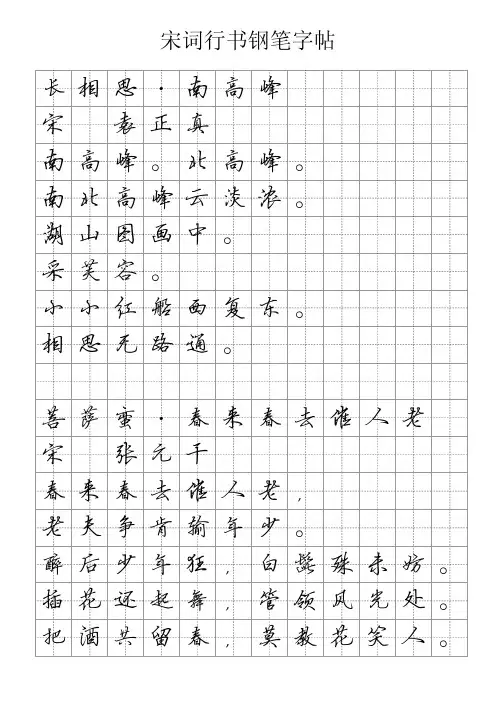 宋词行书钢笔字帖
长相思·南高峰
宋 袁正真
南高峰。北高峰。
南北高峰云淡浓。
湖山图画中。
采芙容。
小小红船西复东。
相思无路通。
菩萨蛮·春来春去催人老
宋 张元干
春来春去催人老,
老夫争肯输年少。
醉后少年狂,白髭殊未妨。
插花还起舞,管领风光处。
把酒共留春,莫教花笑人。